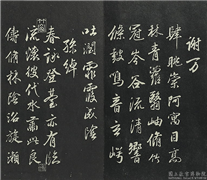 謝万
肆眺崇阿寓目高
林青蘿翳岫脩竹
冠岑谷流清響
條鼓鳴音玄崿
吐潤霏霧成陰
孫綽
春詠登臺亦有臨
流懷彼伐木肅此良
儔脩竹陰沼旋瀨